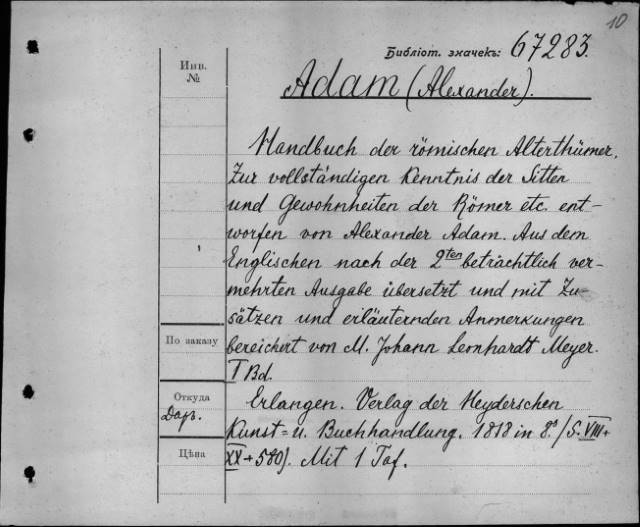 10
Библіот. значекъ: 67283.
Инв.
№
Adam (Alexander).
Handbuch der römischen Alterthümer,
Zur vollständigen Kenntnis der Sitten
und Gewohnheiten der Römer etc. ent-
worfen von Alexander Adam. Aus dem
Englischen nach der 2ten beträchtlich ver-
mehrten Ausgabe übersetzt und mit Zu-
sätzen und erläuternden Anmerkungen
По заказу
bereichert von M. Johann Leonhardt Meyer.
I Bd.
Откуда
Даръ.
Erlangen. Verlag der Heyderschen
Kunst= u. Buchhandlung. 1818 in 8º (S. VIII+
Цѣна
XX+580). Mit 1 Taf.